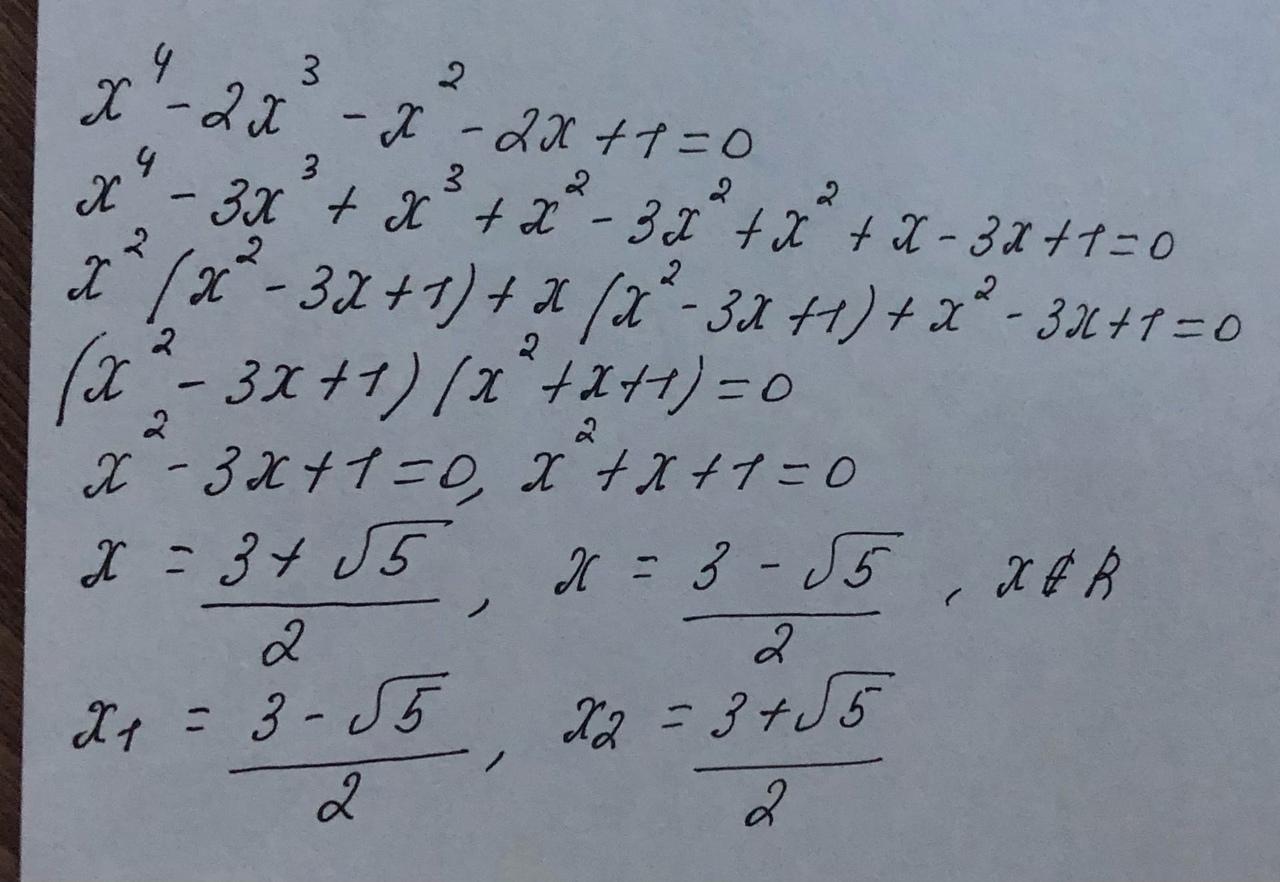 x⁴ - 2x³ - x² - 2x + 1 = 0
x⁴ - 3x³ + x³ + x² - 3x² + x² + x - 3x + 1 = 0
x² (x² - 3x + 1) + x (x² - 3x + 1) + x² - 3x + 1 = 0
(x² - 3x + 1) (x² + x + 1) = 0
x² - 3x + 1 = 0, x² + x + 1 = 0
x = (3 + √5)/2, x = (3 - √5)/2, x ∉ R
x₁ = (3 - √5)/2, x₂ = (3 + √5)/2